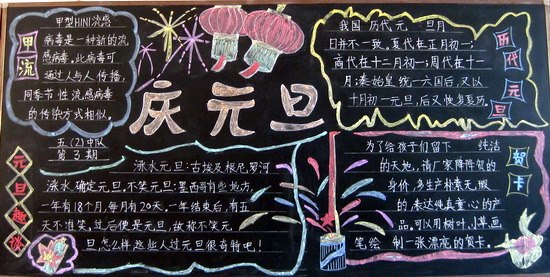 甲流
甲型HINI流感
病毒是一种新的流
感病毒。此病毒可
通过人与人传播,
同季节性流感病毒
的传染方式相似。
五(2)中队
第3期
庆元旦
我国 历代元 旦月
日并不一致。夏代在正月初一;
商代在十二月初一;周代在十一
月;秦始皇统一六国后,又以
十月初一元旦,后又恢复夏历。
历代元旦
元旦趣谈
泳水元旦:古埃及根尼罗河
泳水,确定元旦,不笑元旦:墨西哥有些地方,
一年有18个月,每月有20天,一年结束后,有五
天不准笑,过后便是元旦,故称不笑元
旦怎么样这些人过元旦很奇特吧!
为了给孩子们留下 纯洁
的天地,请厂家降降贺的
身价,多生产朴素无瑕
的表达纯真童心的产
品,可以用树叶、小草画
笔绘 制一张漂亮的贺卡。
贺卡